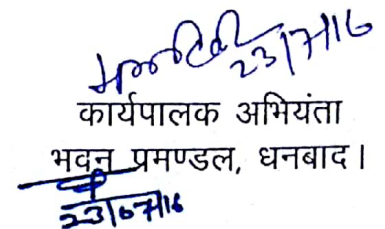 23/7/16
कार्यपालक अभियंता
भवन प्रमण्डल, धनबाद।
23/07/16